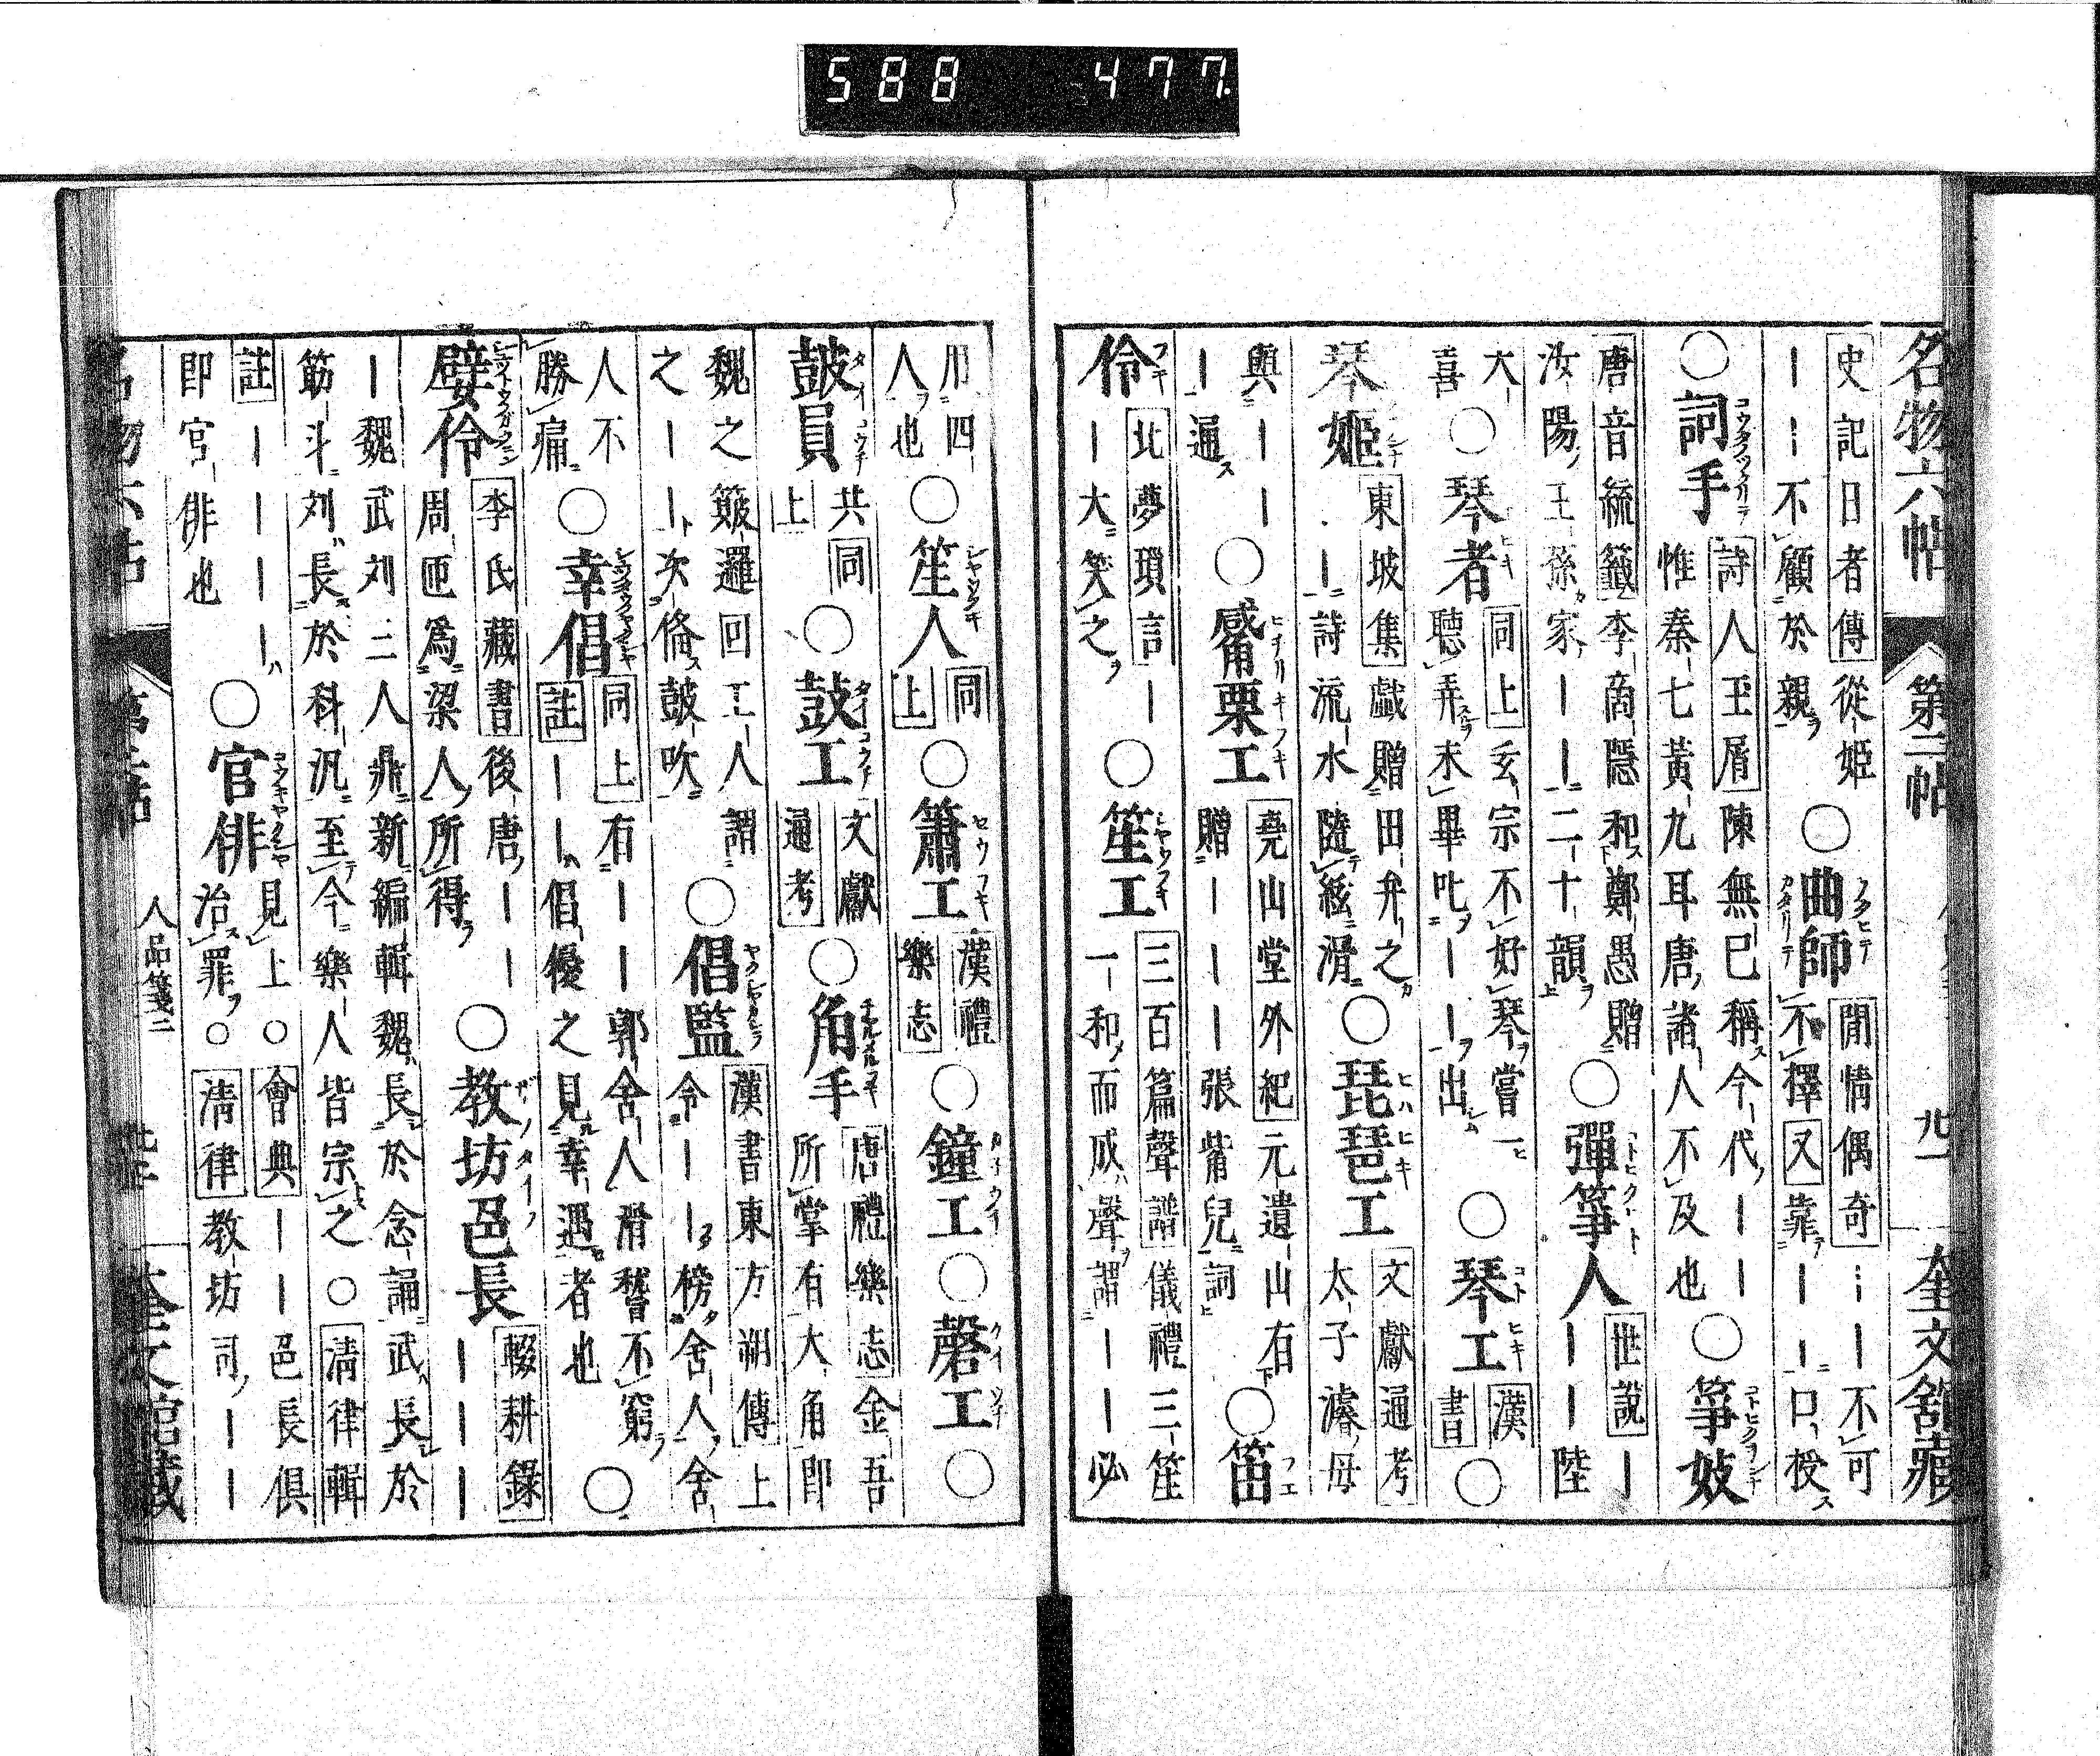 588 477.
名物六帖 第二帖 九一 奎文舘藏
史記日者傳從姫
｜｜不顧於親
○曲師
閒情偶奇｜｜不可
不擇又靠｜｜口授
○詞手
詩人玉屑陳無已稱今代｜｜
惟秦七黄九耳唐諸人不及也
○箏妓
唐音統籤李商隱和鄭愚贈
汝陽王孫家｜｜二十韻上
○彈箏人
世說｜
｜｜陸
大
喜
○琴者
同上玄宗不好琴嘗一
聽弄未畢叱｜｜出
○琴工
漢
書
○
琴姬
東坡集戯贈田弁之
｜詩流水隨絃滑
○琵琶工
文獻通考
太子濬母
與｜｜
｜通
○觱栗工
堯山堂外紀元遺山有
贈｜｜｜張觜兒詞
○笛
伶
北夢瑣言｜
｜大笑之
○笙工
三百篇聲譜儀禮三笙
一和而成聲謂｜｜必
用四
人也
○笙人
同
上
○簫工
漢禮
樂志
○鐘工○磬工○
鼓員
共同
上
○鼓工
文獻
通考
○角手
唐禮樂志金吾
所掌有大角即
魏之簸邏回工人謂
之｜｜次脩鼓吹
○倡監
漢書東方朔傳上
令｜｜榜舍人舍
人不
勝痛
○幸倡
同上有｜｜郭舍人滑稽不窮
註｜｜倡優之見幸遇者也
○
嬖伶
李氏藏書後唐｜｜
周匝爲梁人所得
○教坊邑長
輟耕錄
｜｜｜｜
｜魏武刘三人鼎新編輯魏長於念誦武長於
筋斗刘長於科汎至今樂人皆宗之○淸律輯
註｜｜｜｜
即官俳也
○官俳
見上○會典｜｜邑長俱
治罪○淸律教坊司｜｜
人品箋二